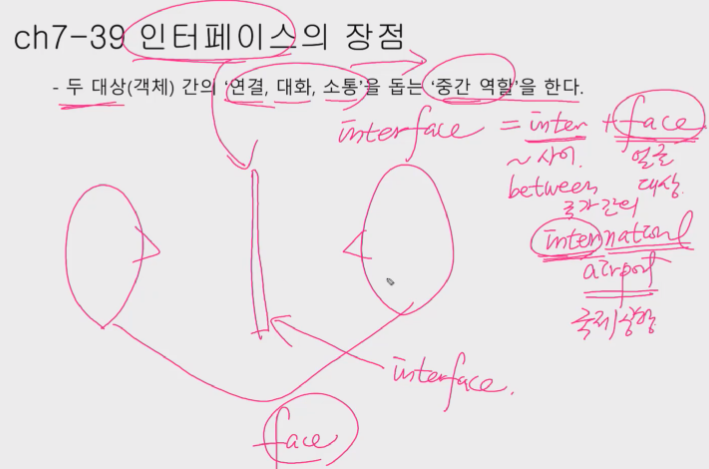 ch7-39 인터페이스의 장점
- 두 대상(객체) 간의 '연결, 대화, 소통'을 돕는 '중간 역할'을 한다.
interface = inter + face
~사이. 얼굴
between 대상.
국가간의
international
airport
국제
interface.
face